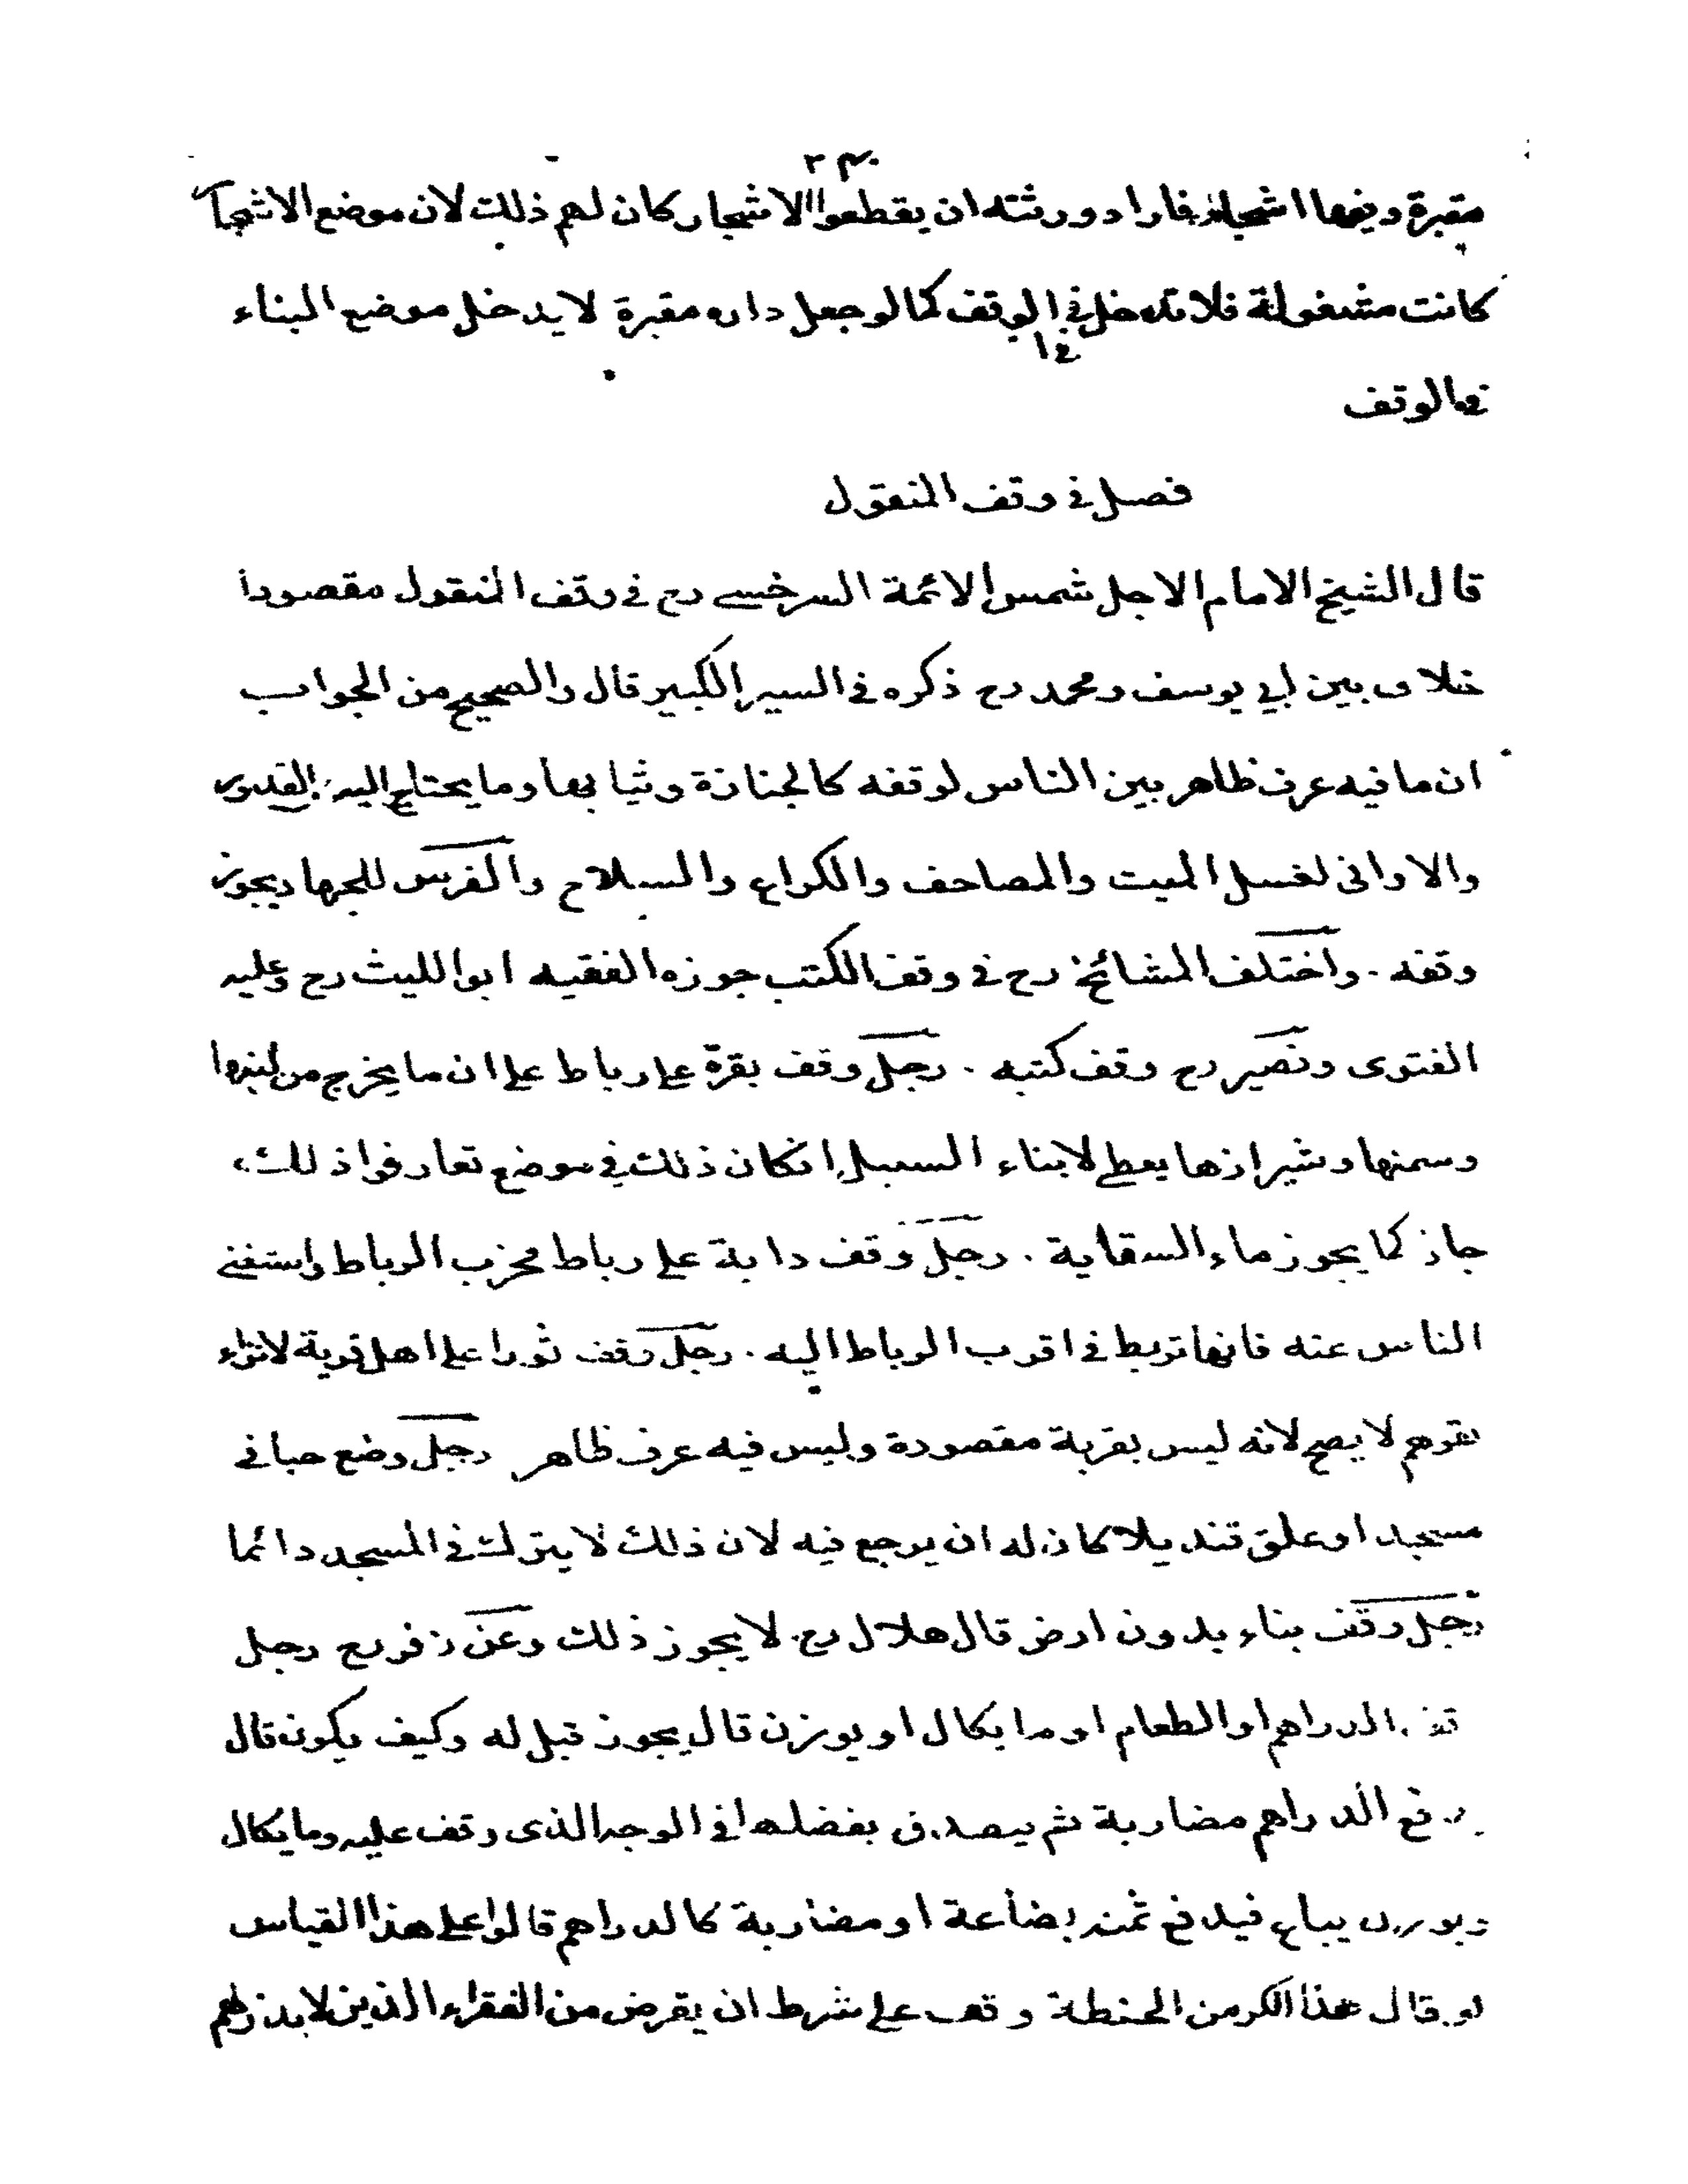 مقبرة وفيها اشجار فاراد ورثته ان يقطعوا الاشجار كان لهم ذلك لان موضع الاشجار
كانت مشغولة فلا تدخل في الوقف كما لو جعل داره مقبرة لا يدخل موضع البناء
في الوقف
فصل في وقف المنقول
قال الشيخ الامام الاجل شمس الائمة السرخسي رح في وقف المنقول مقصودا
خلاف بين ابي يوسف ومحمد رح ذكره في السير الكبير قال والصحيح من الجواب
ان ما فيه عرف ظاهر بين الناس لوقفه كالجنازة وثيابها وما يحتاج اليه القدور
والاواني لغسل الميت والمصاحف والكراع والسلاح والفرس للجهاد يجوز
وقفه . واختلف المشائخ رح في وقف الكتب جوزه الفقيه ابو الليث رح وعليه
الفتوى ونصير رح وقف كتبه . رجل وقف بقرة على رباط على ان ما يخرج من لبنها
وسمنها وشيرازها يعطى لابناء السبيل ان كان ذلك في موضع تعارفوا ذلك
جاز كما يجوز ماء السقاية . رجل وقف دابة على رباط فخرب الرباط واستغنى
الناس عنه فانها تربط في اقرب الرباط اليه . رجل وقف ثورا على اهل قرية لانزاء
بقرهم لا يصح لانه ليس بقربة مقصودة وليس فيه عرف ظاهر رجل وضع حبا في
مسجد او علق قنديلا كان له ان يرجع فيه لان ذلك لا يترك في المسجد دائما
رجل وقف بناء بدون ارض قال هلال رح لا يجوز ذلك وعن زفر رح رجل
وقف الدراهم او الطعام او ما يكال او يوزن قال يجوز قيل له وكيف يكون قال
يدفع الدراهم مضاربة ثم يتصدق بفضلها في الوجه الذي وقف عليه وما يكال
ويوزن يباع فيدفع ثمنه بضاعة او مضاربة كالدراهم قالوا على هذا القياس
لو قال هذا الكر من الحنطة وقف على شرط ان يقرض من الفقراء الذين لا بذر لهم